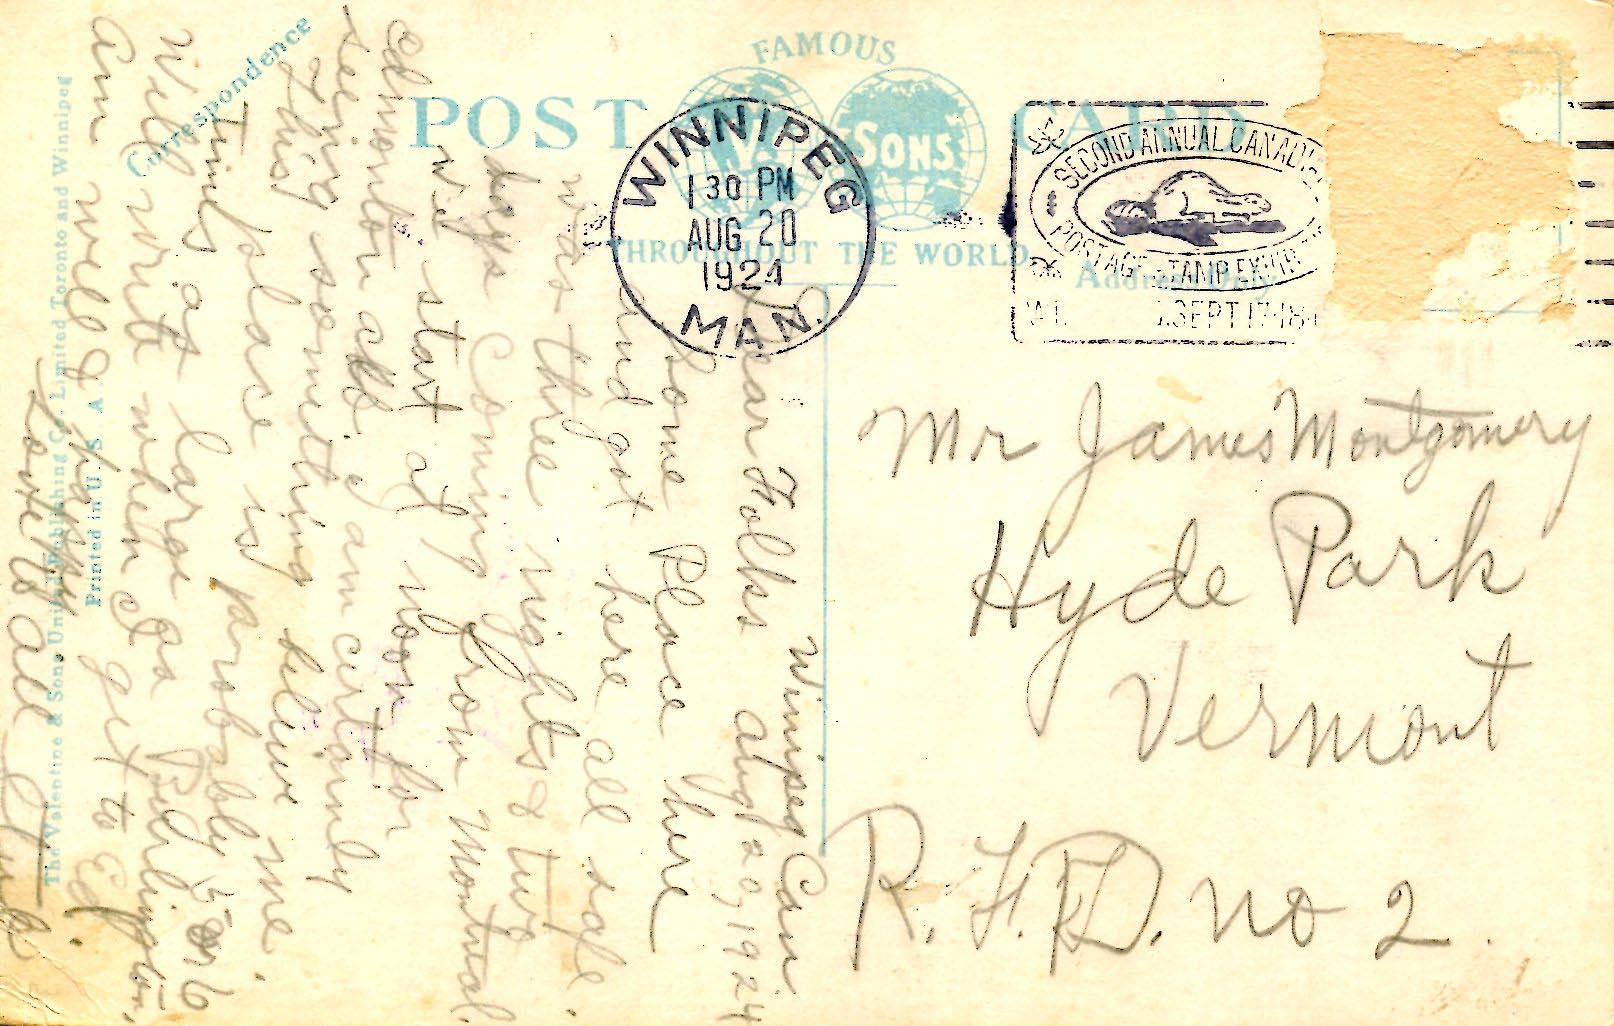 FAMOUS
POST CARD
V.
SONS
THROUGHOUT THE WORLD
Correspondence
Address Only
WINNIPEG
1 30 PM
AUG 20
1924
MAN.
SECOND ANNUAL CANADIAN
POSTAGE STAMP EXHIBITI
SEPT 17-18-
Winnipeg Can
Dear Folks Aug 20, 1924
Some Place here
and got here all safe.
was three nights & two
days Coming from Montreal.
We start at noon for
Edmonton Alb. I am certainly
seeing something beleive me.
This place is probably 5 or 6
Times as large as Burlington,
Will write when I get to Ed
am well & happy
Love to all
Mr James Montgomery
Hyde Park
Vermont
R.F.D. no 2.
The Valentine & Sons United Publishing Co. Limited Toronto and Winnipeg
Printed in U. S. A.